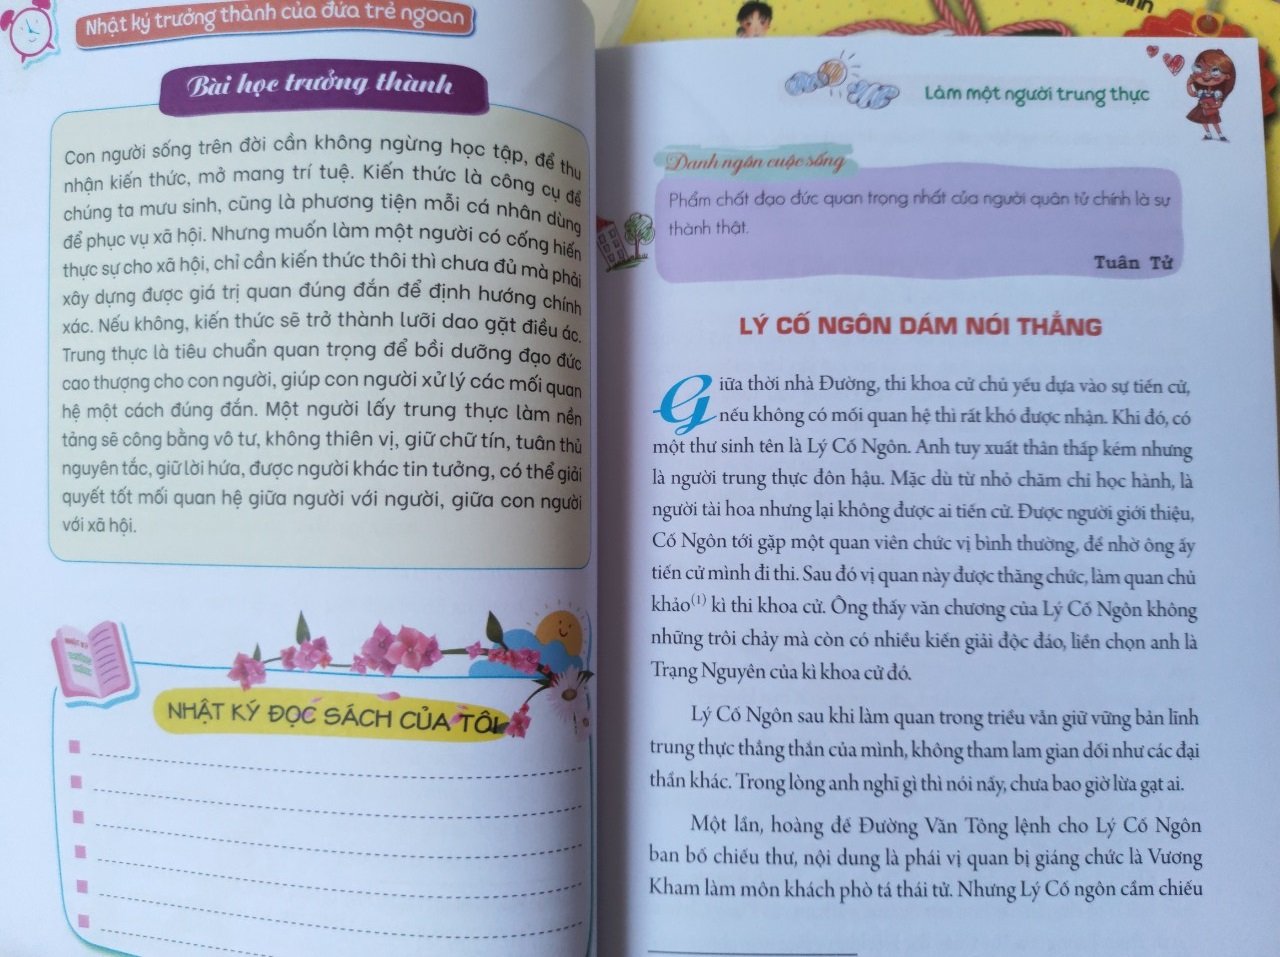 Nhật ký trưởng thành của đứa trẻ ngoan
Bài học trưởng thành
Con người sống trên đời cần không ngừng học tập, để thu
nhận kiến thức, mở mang trí tuệ. Kiến thức là công cụ để
chúng ta mưu sinh, cũng là phương tiện mỗi cá nhân dùng
để phục vụ xã hội. Nhưng muốn làm một người có cống hiến
thực sự cho xã hội, chỉ cần kiến thức thôi thì chưa đủ mà phải
xây dựng được giá trị quan đúng đắn để định hướng chính
xác. Nếu không, kiến thức sẽ trở thành lưỡi dao gặt điều ác.
Trung thực là tiêu chuẩn quan trọng để bồi dưỡng đạo đức
cao thượng cho con người, giúp con người xử lý các mối quan
hệ một cách đúng đắn. Một người lấy trung thực làm nền
tảng sẽ công bằng vô tư, không thiên vị, giữ chữ tín, tuân thủ
nguyên tắc, giữ lời hứa, được người khác tin tưởng, có thể giải
quyết tốt mối quan hệ giữa người với người, giữa con người
với xã hội.
NHẬT KÝ
NHẬT KÝ ĐỌC SÁCH CỦA TÔI
Làm một người trung thực
Danh ngôn cuộc sống
Phẩm chất đạo đức quan trọng nhất của người quân tử chính là sự
thành thật.
Tuân Tử
LÝ CỐ NGÔN DÁM NÓI THẲNG
Giữa thời nhà Đường, thi khoa cử chủ yếu dựa vào sự tiến cử,
nếu không có mối quan hệ thì rất khó được nhận. Khi đó, có
một thư sinh tên là Lý Cố Ngôn. Anh tuy xuất thân thấp kém nhưng
là người trung thực đôn hậu. Mặc dù từ nhỏ chăm chỉ học hành, là
người tài hoa nhưng lại không được ai tiến cử. Được người giới thiệu,
Cố Ngôn tới gặp một quan viên chức vị bình thường, để nhờ ông ấy
tiến cử mình đi thi. Sau đó vị quan này được thăng chức, làm quan chủ
khảo(1) kì thi khoa cử. Ông thấy văn chương của Lý Cố Ngôn không
những trôi chảy mà còn có nhiều kiến giải độc đáo, liền chọn anh là
Trạng Nguyên của kì khoa cử đó.
Lý Cố Ngôn sau khi làm quan trong triều vẫn giữ vững bản lĩnh
trung thực thẳng thắn của mình, không tham lam gian dối như các đại
thần khác. Trong lòng anh nghĩ gì thì nói nấy, chưa bao giờ lừa gạt ai.
Một lần, hoàng đế Đường Văn Tông lệnh cho Lý Cố Ngôn
ban bố chiếu thư, nội dung là phái vị quan bị giáng chức là Vương
Kham làm môn khách phò tá thái tử. Nhưng Lý Cố ngôn cầm chiếu